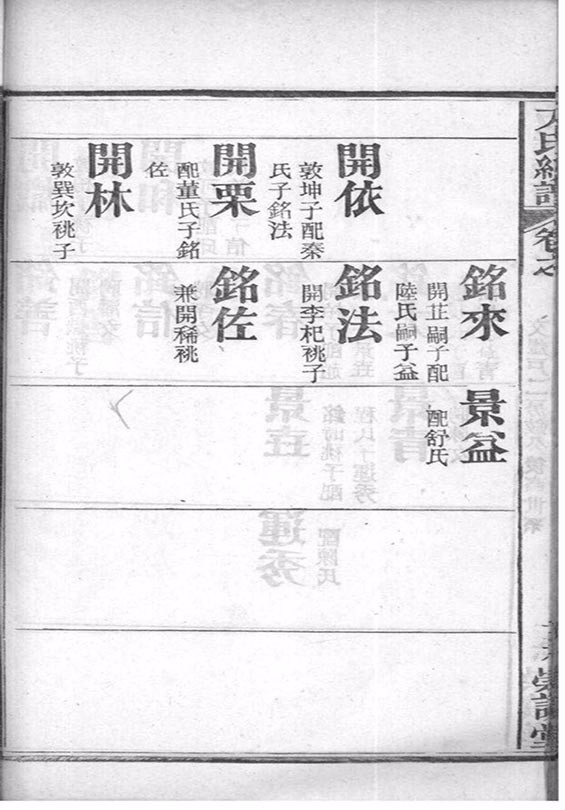 開依
敦坤子配秦
氏子銘法
開栗
配董氏子銘
佐
開林
敦巽坎祧子
銘來
開芷嗣子配
陸氏嗣子益
銘法
開李杞祧子
銘佐
兼開稀祧
景益
配舒氏